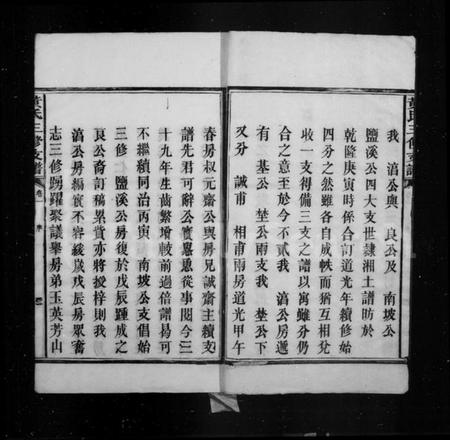 我　滈公與　良公及　南坡公
鹽溪公四大支世隸湘土譜昉於
乾隆庚寅時係合訂道光年續修始
四分之然雖各自成帙而猶互相兌
收一支得備三支之譜以寓雖分仍
合之意至於今不貳我　滈公房遞
有　基公　埜公兩支我　埜公下
又分　誠甫　相甫兩房道光甲午
春房叔元齋公與房兄誠齋主續支
譜先君可辭公實慫恿從事閱今三
十九年生齒繁增較前過倍譜易可
不繼續同治丙寅　南坡公支倡始
三修　鹽溪公房復於戊辰踵成之
良公裔訂稿累賁亦將授梓則我
滈公房編實不容緩歲戊辰房眾奮
志三修踴躍聚議舉房弟玉英芳山
三修支譜
三修支譜